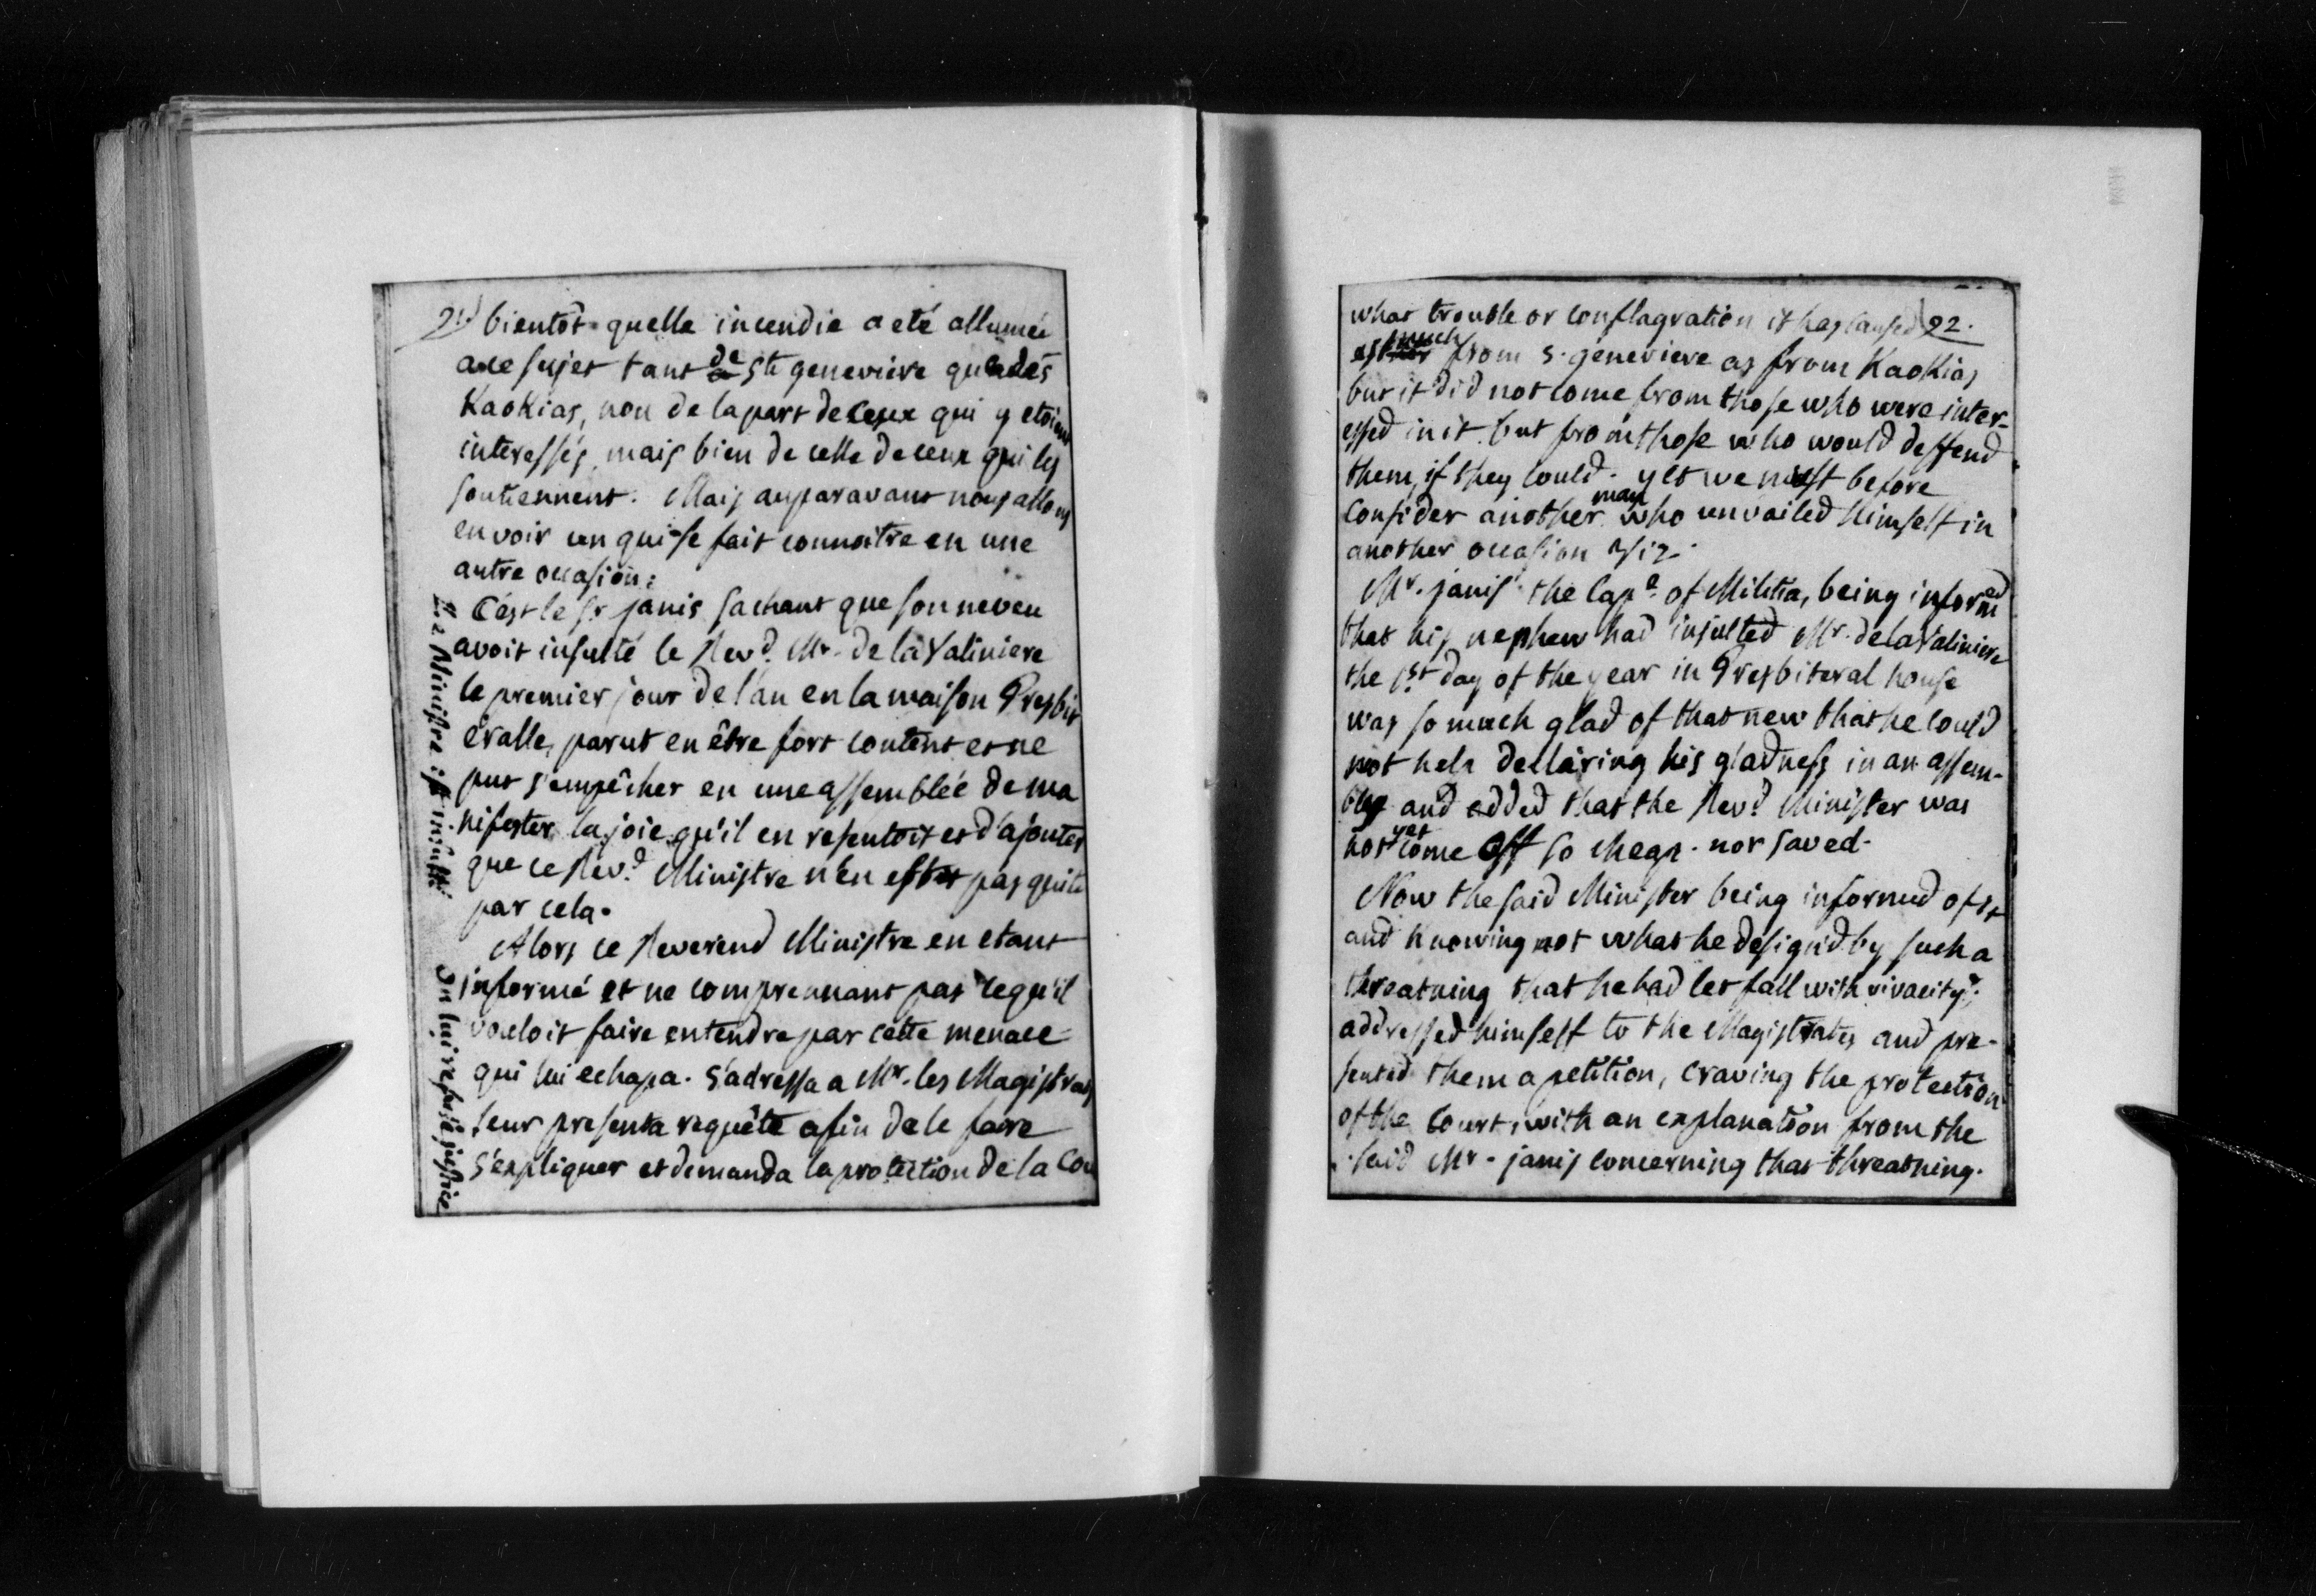 21) bientôt quelle incendie a eté allumée
a ce sujet tant de Ste genevieve que des
KaoKias, non de la part de ceux qui y etoient
interessés, mais bien de celle de ceux qui les
soutiennent. Mais auparavant nous allons
en voir un qui se fait connoitre en une
autre occasion:
C'est le Sr janis sachant que son neveu
avoit insulté le Revd. Mr. de la Valiniere
le premier jour de l'an en la maison Presbit
éralle, parut en être fort content et ne
put s'empêcher en une assemblée de ma
nifester la joie qu'il en resentoit et d'ajouter
que ce Revd. Ministre n'en est pas quite
par cela.
Alors ce Reverend Ministre en etant
informé et ne comprennant pas ce qu'il
vouloit faire entendre par cette menace
qui lui echapa. s'adressa a Mr. les Magistrats
leur presenta requête afin de le faire
s'expliquer et demanda la protection de la Cou
Le Ministre est insulté
On lui refuse justice
what trouble or conflagration it has caused 22.
as much from S. genevieve as from KaoKias
but it did not come from those who were inter-
essed in it but from those who would deffend
them, if they could. yet we must before
consider another man who unvailed himself in
another occasion viz.
Mr. janis the Cape. of Militia, being informed
that his nephew had insulted Mr. de la Valiniere
the 1st day of the year in Presbiteral house
was so much glad of that new that he could
not help declaring his gladness in an assem-
bly and added that the Revd. Minister was
not yet come off so cheap. nor saved.
Now the said Minister being informed of it
and Knowing not what he design'd by such a
threatning that he had let fall with vivacity;
addressed himself to the Magistrates and pre-
sented them a petition, craving the protection
of the Court, with an explanation from the
said Mr. janis concerning that threatning.